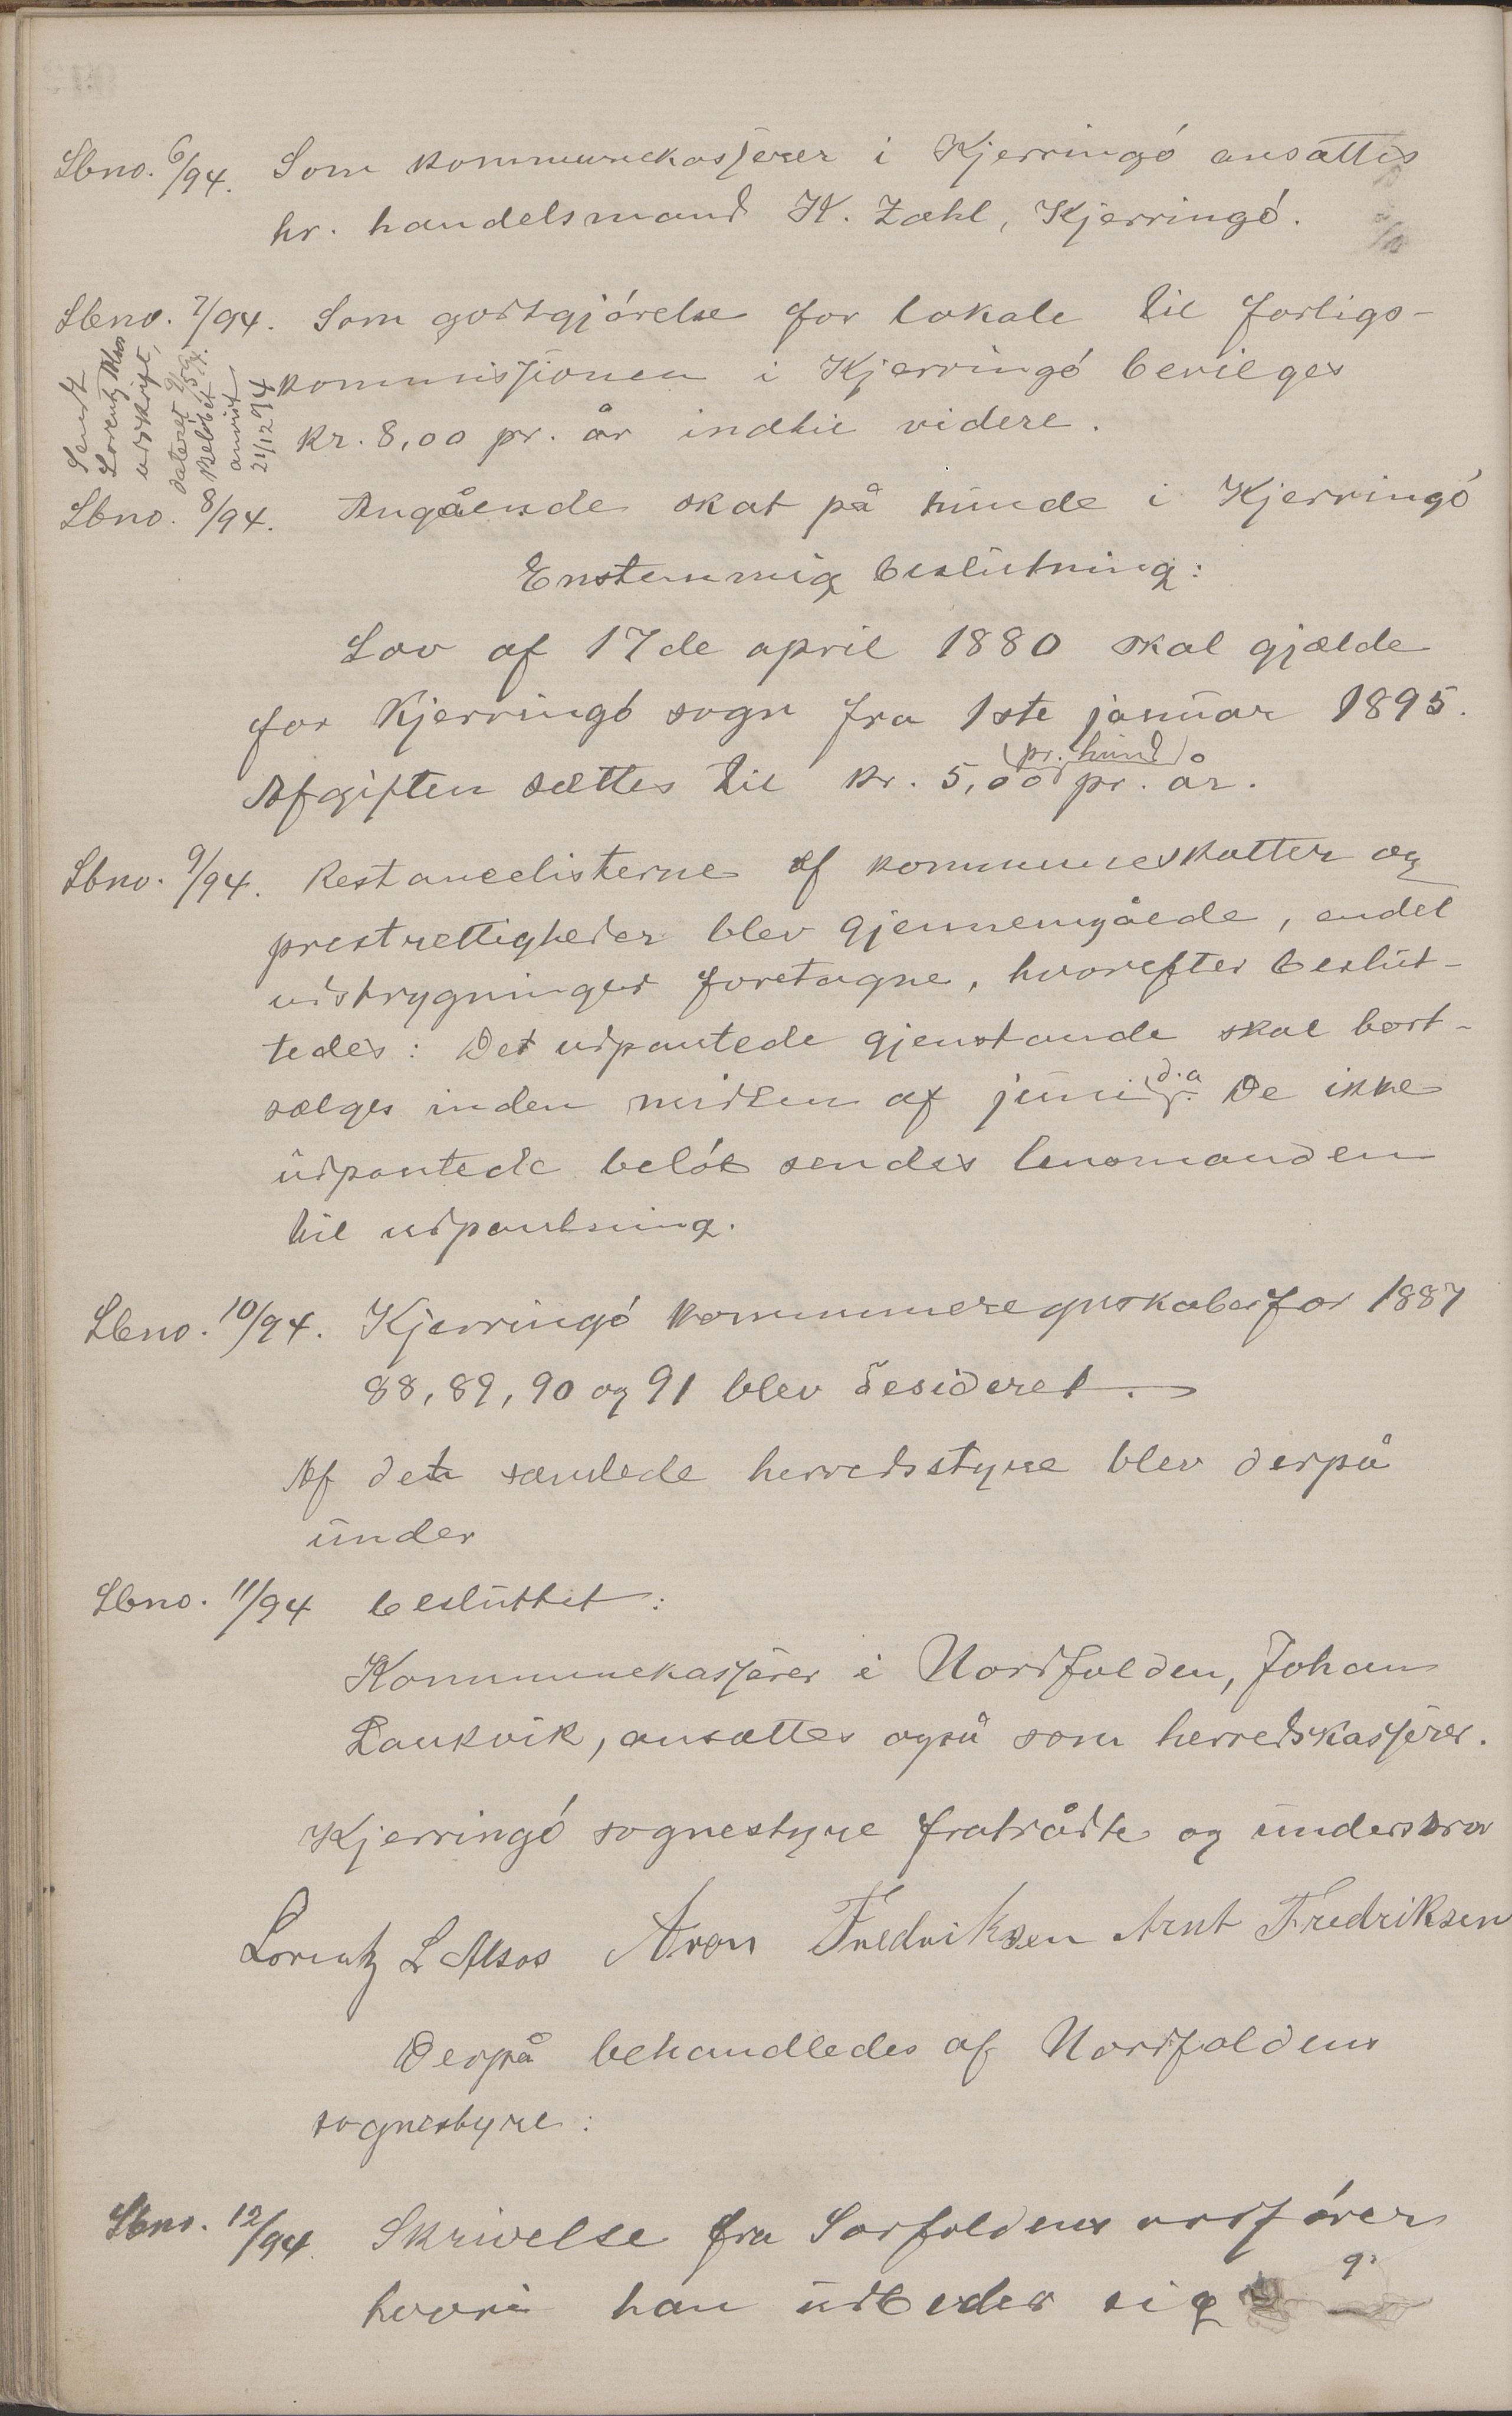 Lbno. 6/94. Som kommunekasjerer i Kjerringó ansættes
hr. handelsmand K. Zahl, Kjerringó.
Lbno. 7/94. Som godtgjórelse for lokale til forligs-
kommissjonen i Kjerringó bevilges
kr. 8,00 pr. år indtil videre.
Sendt
Lorentz Alsos
udskrift,
dateret
Beløbet
anvist
21/12 94
Lbno. 8/94. Angående skat på hunde i Kjerringó
Enstemmig beslutning:
Lov af 17de april 1880 skal gjælde
for Kjerringó sogn fra 1ste januar 1895.
Afgiften sættes til kr. 5,00 (pr. hund) pr. år.
Lbno. 9/94. Restancelisterne af kommuneskatter og
prestrettigheder blev gjennemgåede, endel
udstrygninger foretagne, hvorefter beslut-
tedes: Det udpantede gjenstande skal bort-
sælges inden midten af juni d.a. De ikke
udpantede belób sendes lensmanden
til udpantning.
Lbno. 10/94. Kjerringó kommuneregnskaber for 1887
88, 89, 90 og 91 blev desideret.
Af det samlede herredsstyre blev derpå
under
Lbno. 11/94 besluttet:
Kommunekasjerer i Nordfolden, Johan
Laukvik, ansættes også som herredskasjerer.
Kjerringó sognestyre fratrådte og underskrev
Lorentz L Alsos Aron Fredriksen Arnt Fredriksen
Derpå behandledes af Nordfoldens
sognestyre:
Lbno. 12/94. Skrivelse fra Sørfoldens ordfórer
hvori han udbeder sig